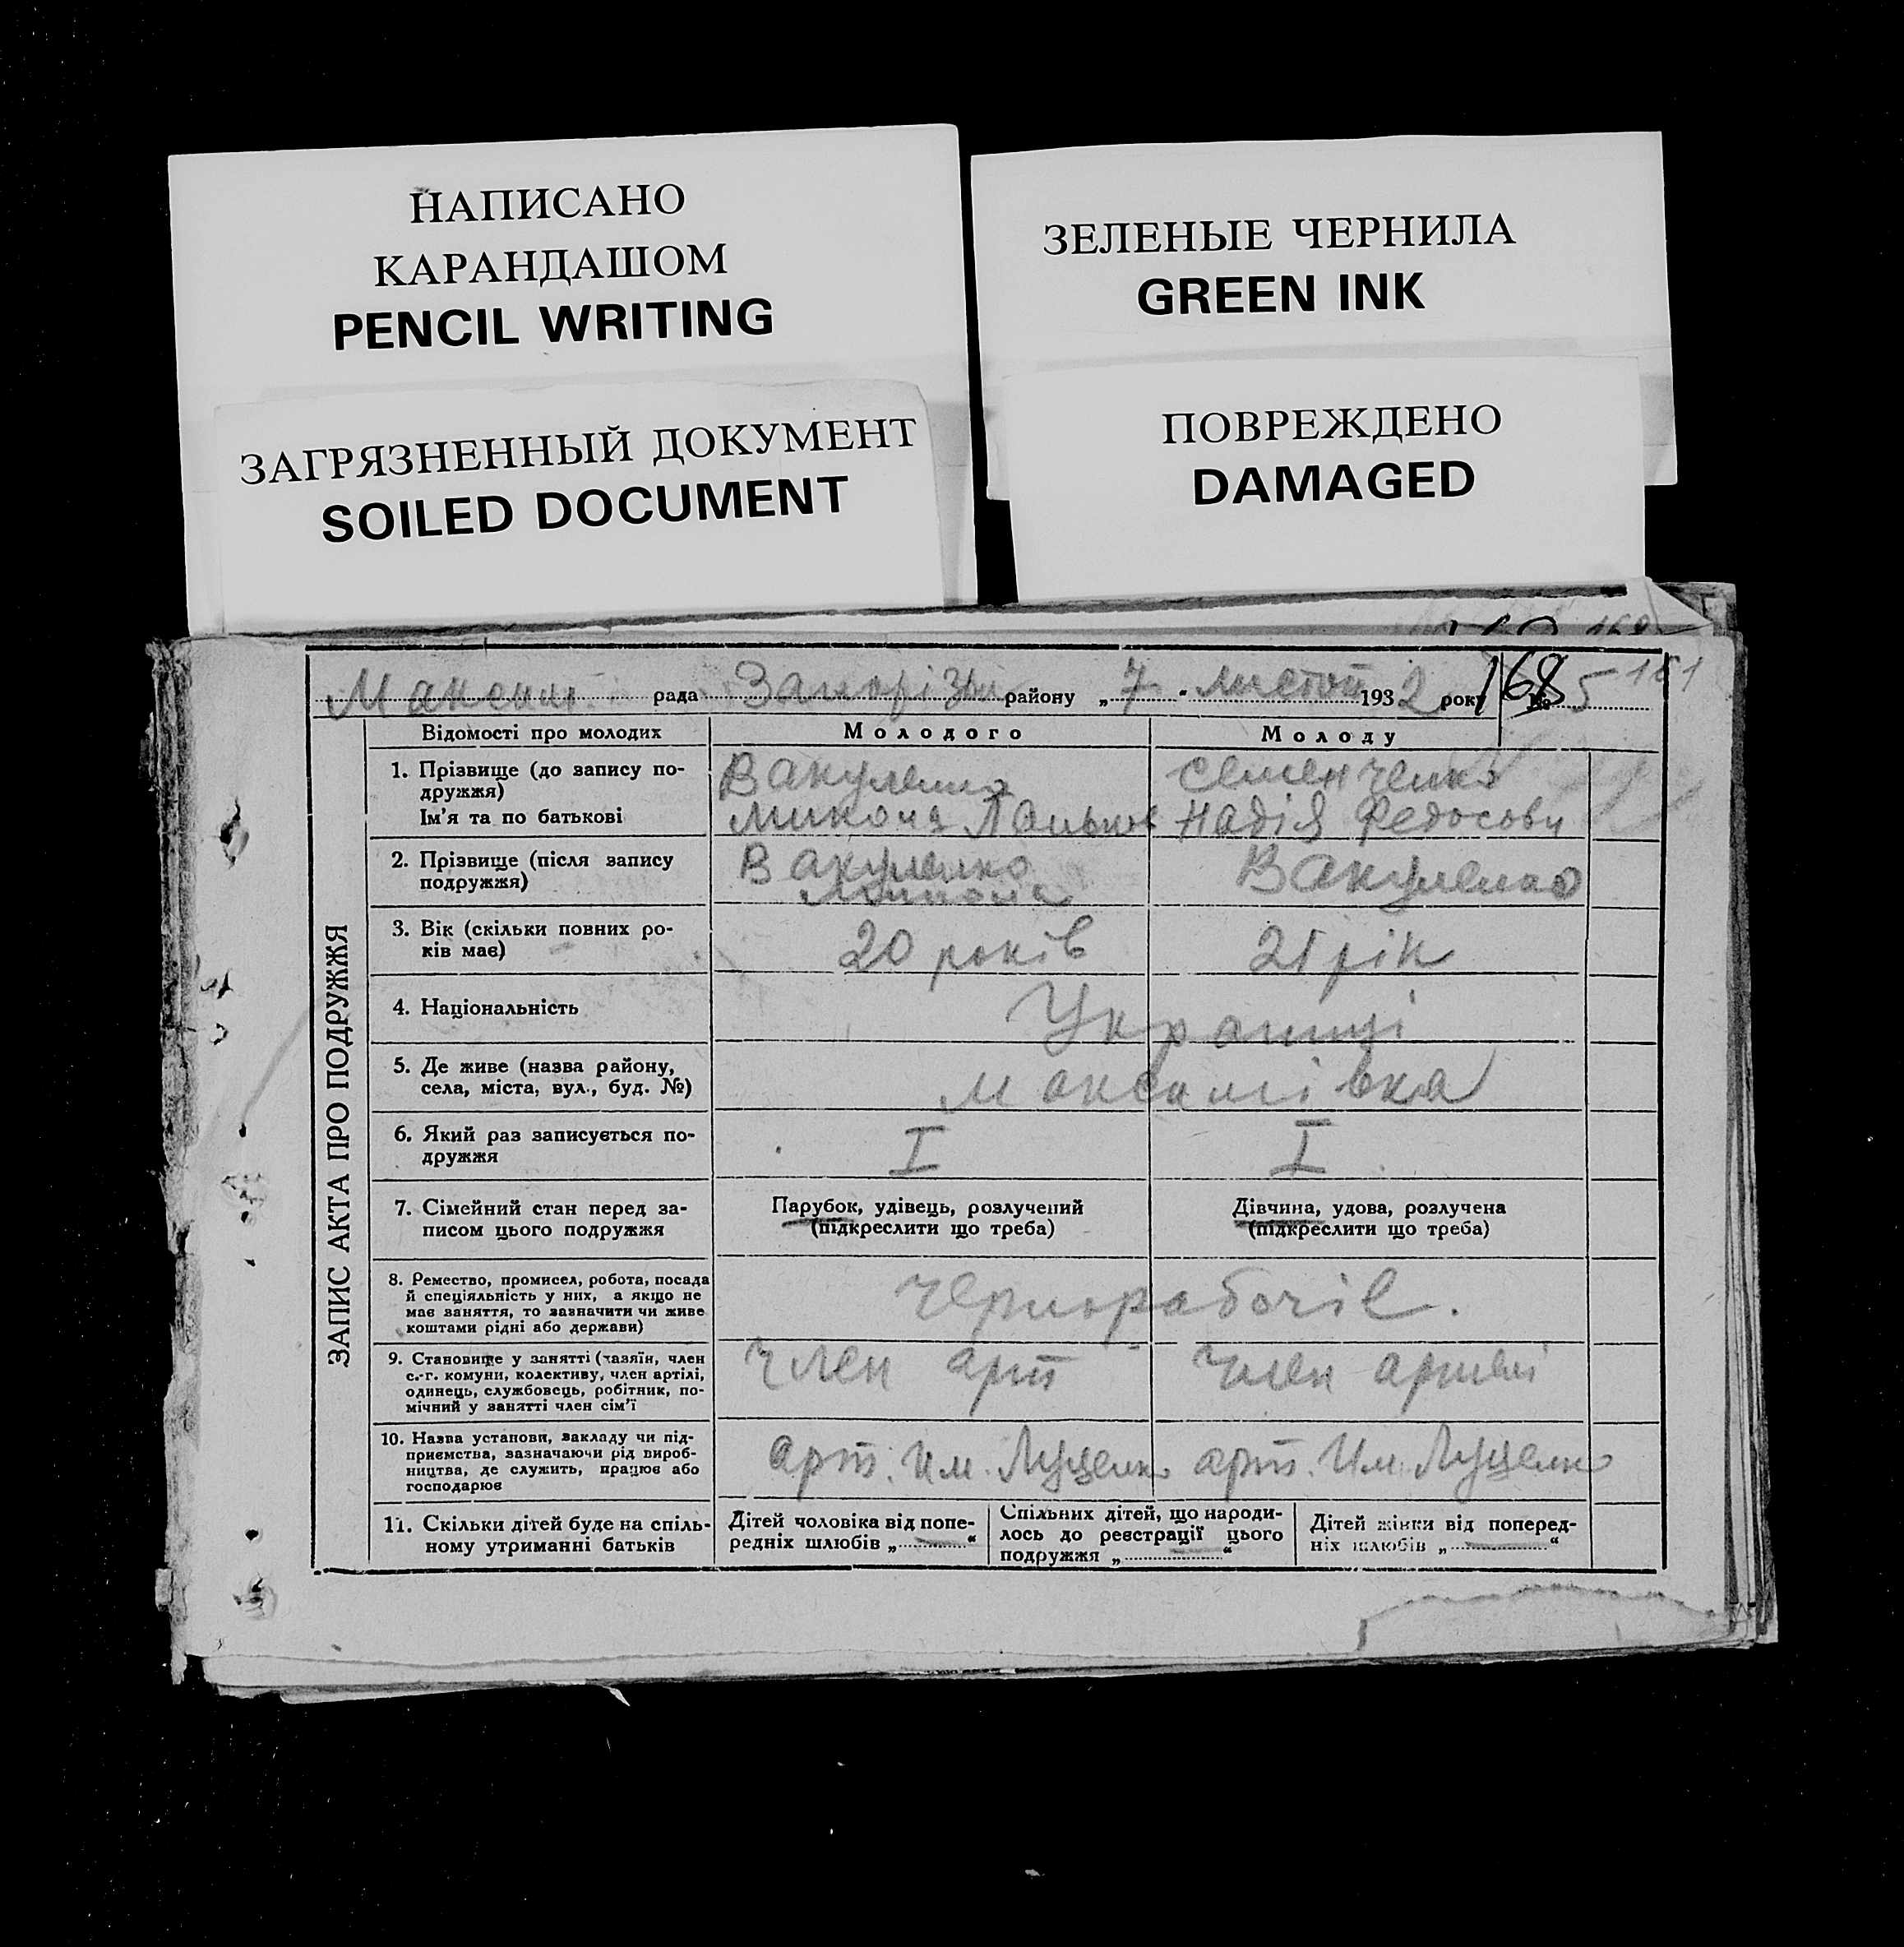 НАПИСАНО
КАРАНДАШОМ
PENCIL WRITING
ЗЕЛЕНЫЕ ЧЕРНИЛА
GREEN INK
ЗАГРЯЗНЕННЫЙ ДОКУМЕНТ
SOILED DOCUMENT
ПОВРЕЖДЕНО
DAMAGED
рада района „ 7 “ 1932 року № 5
ЗАПИС АКТА ПРО ПОДРУЖЖЯ
Відомості про молодих
Молодого
Молоду
1. Прізвище (до запису по-
дружжя)
Ім'я та по батькові
Вакуленко
Микола
Семенченко
Надія Федосовн
2. Прізвище (після запису
подружжя)
Вакуленко
Микола
Вакуленко
3. Вік (скільки повних ро-
ків має)
20 років
21 рік
4. Національність
Українці
5. Де живе (назва району,
села, міста, вул., буд. №)
Максимівка
6. Який раз записується по-
дружжя
I
I
7. Сімейний стан перед за-
писом цього подружжя
Парубок, удівець, розлучений
(підкреслити що треба)
Дівчина, удова, розлучена
(підкреслити що треба)
8. Ремество, промисел, робота, посада
й спеціяльність у них, а якщо не
має заняття, то зазначити чи живе
коштами рідні або держави)
9. Становище у занятті (хазяїн, член
с.-г. комуни, колективу, член артілі,
одинець, службовець, робітник, по-
мічний у занятті член сім'ї
член арт
член артілі
10. Назва установи, закладу чи під-
приємства, зазначаючи рід вироб-
ництва, де служить, працює або
господарює
арт. Им. Луценко
арт. Им. Луценко
11. Скільки дітей буде на спіль-
ному утриманні батьків
Дітей чоловіка від попе-
редніх шлюбів „ “
Спільних дітей, що народи-
лось до реєстрації цього
подружжя „ “
Дітей жінки від поперед-
ніх шлюбів „ “